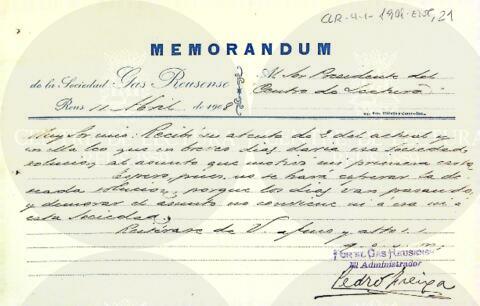 CLR-4-1-1908-EISC, 21
MEMORANDUM
de la Sociedad Gas Reusense
Reus 11 Abril de 1908
Al Sor Presidente del
Centro de Lectura
Muy Sr mio: Recibí su atenta de 2 del actual y
en ella leo que en breves dias daria esa Sociedad,
solucion, al asunto que motivó mi primera carta.
Espero, pues, no se hará esperar la de-
seada solucion, porque los dias van pasando,
y demorar el asunto no conviene ni á esa ni á
esta Sociedad.
Reitérase de V. afmo y atto s.s.
POR EL GAS REUSENSE
El Administrador
Pedro